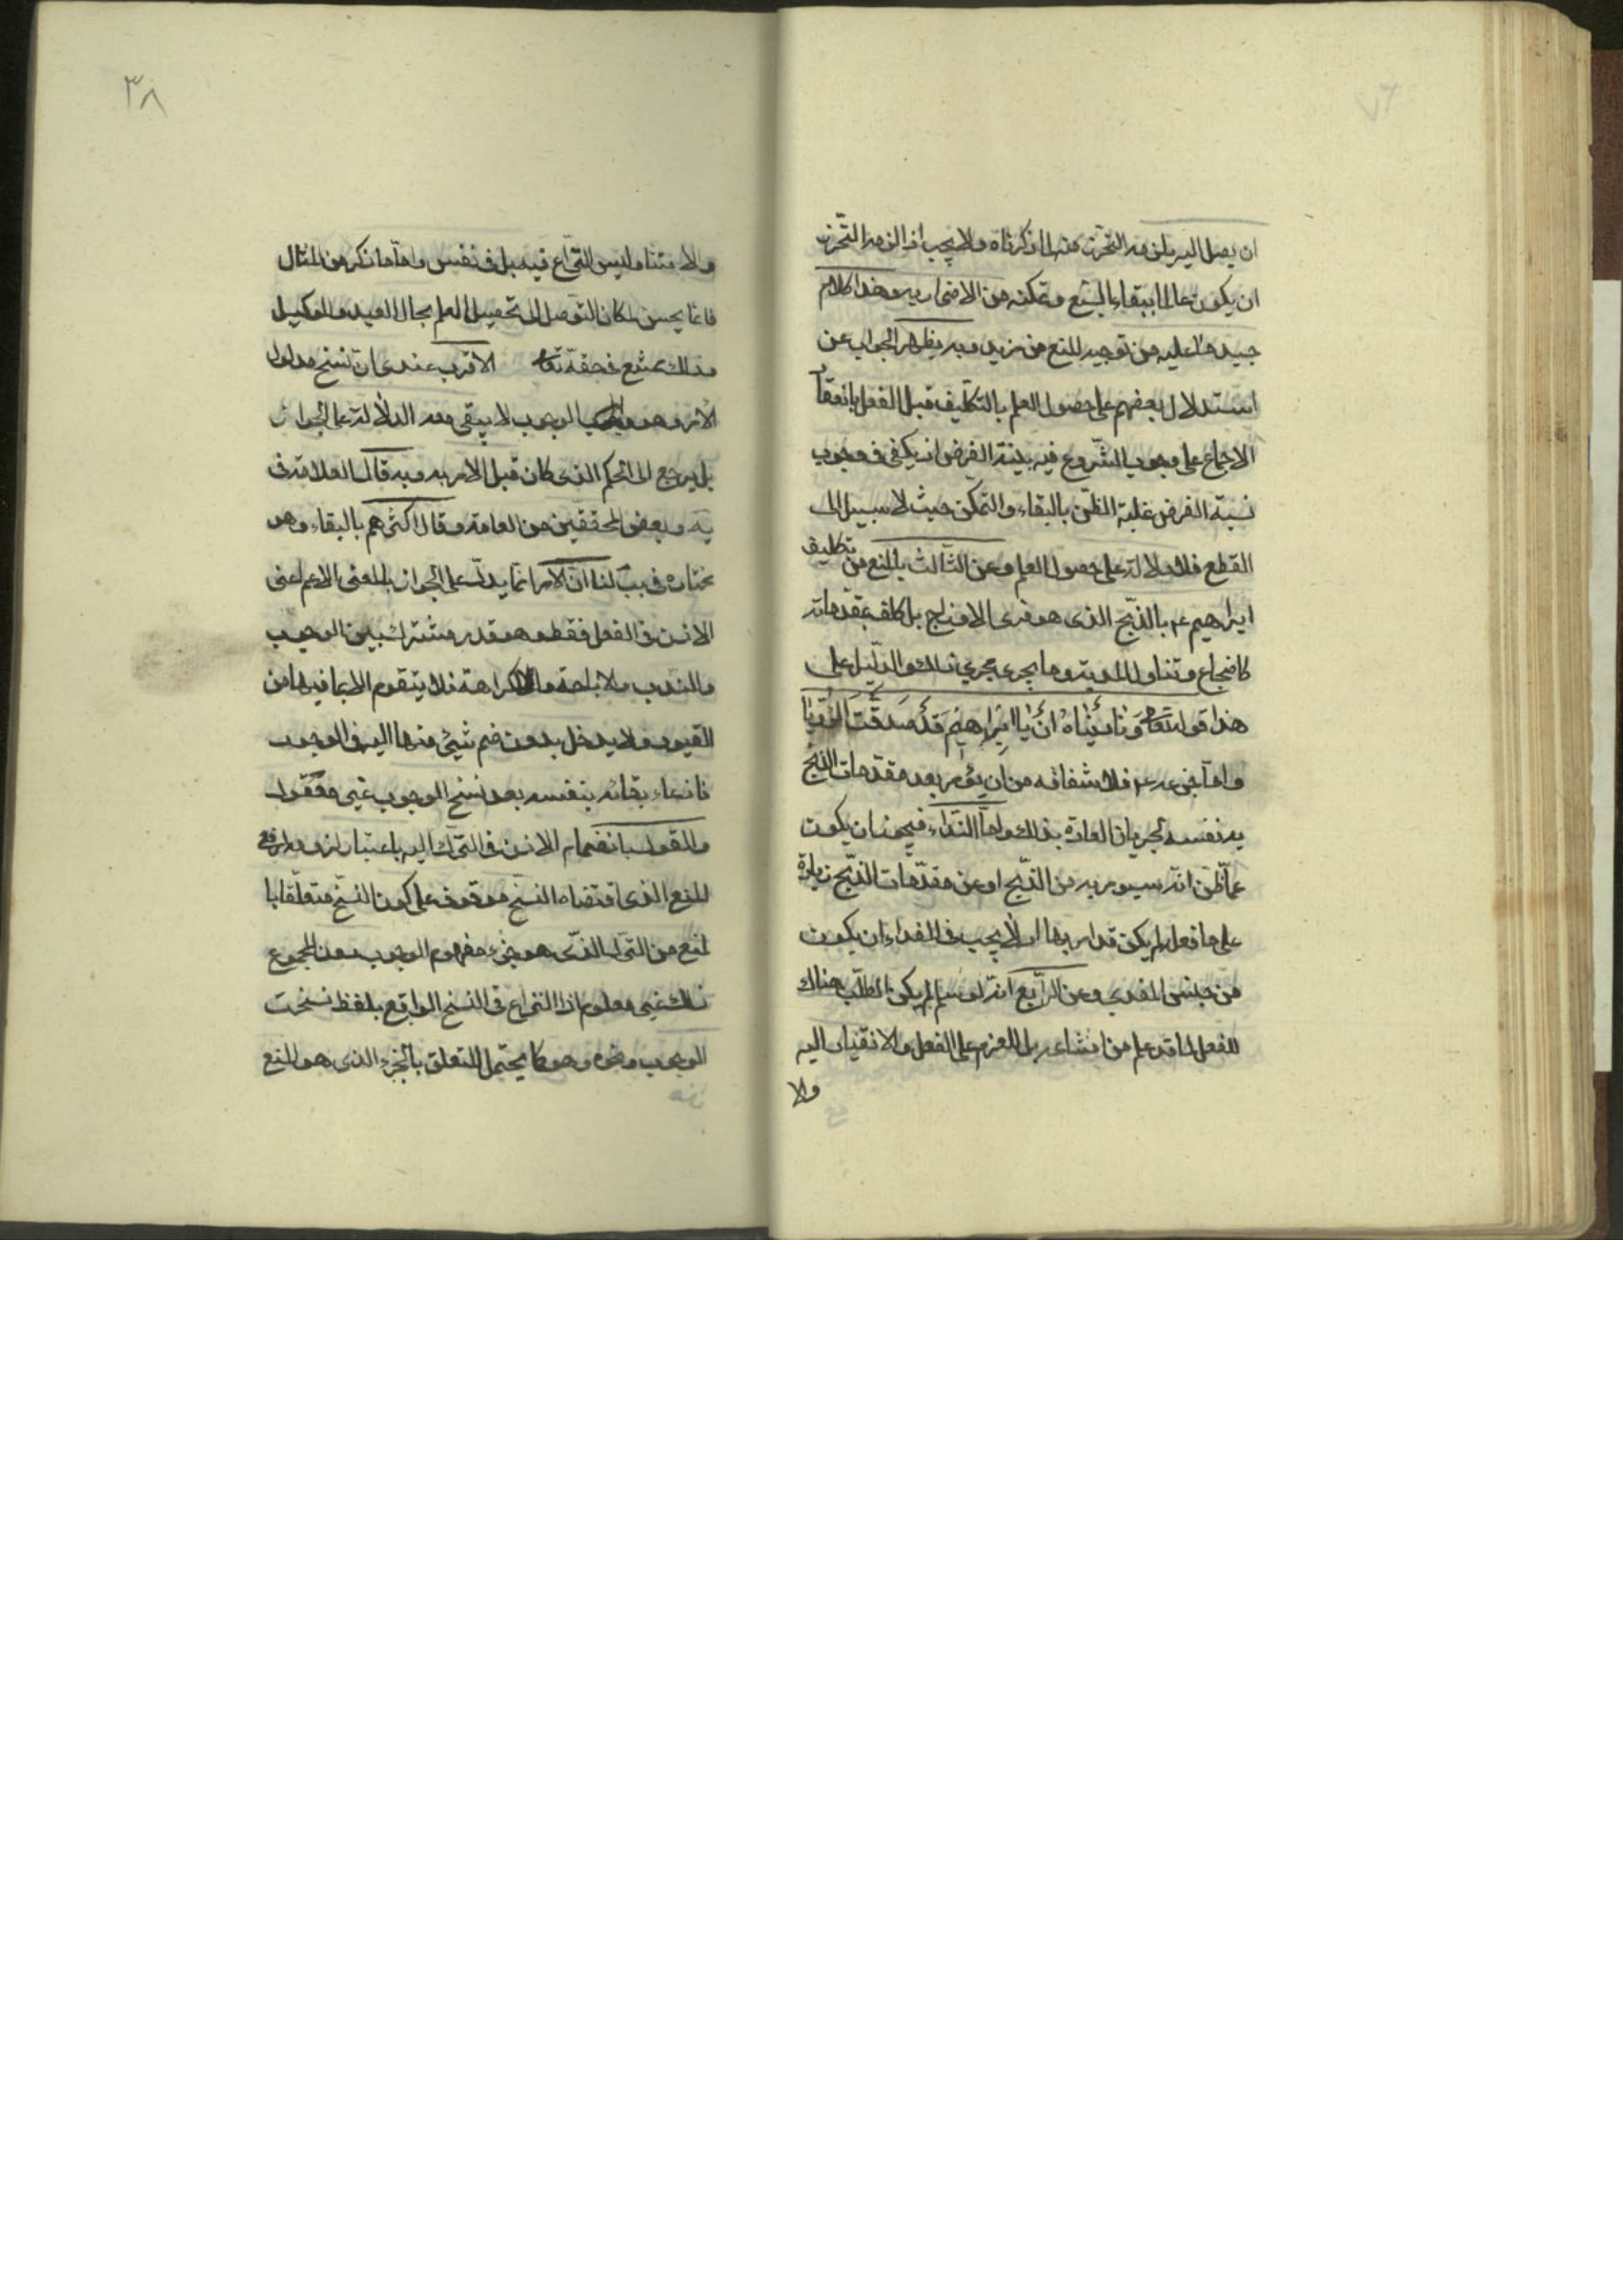 ٧٦
ان يصل اليه يلزمه التحرز منه لما ذكرناه ولا يجب اذا لزمه التحرز
ان يكون عالما ببقاء السبع وتمكنه من الاضرار به وهذا كلام
جيد ما عليه من توجيه المنع من مزيد وبه يظهر الجواب عن
استدلال بعضهم على حصول العلم بالتكليف قبل الفعل بانعقا
الاجماع على وجوب الشروع فيه بنية الفرض اذ يكفى فى وجوب
نية الفرض غلبة الظن بالبقاء والتمكن حيث لا سبيل الى
القطع فلا دلالة على حصول العلم وعن الثالث بالمنع من تكليف
ابراهيم ع م بالذبح الذى هو فرى الاوداج بل كلف بمقدماته
كاضجاع وتناول المدية وما يجرى مجرى ذلك والدليل على
هذا قوله تعا وَنادَيْناهُ اَنْ يا اِبْراهيمُ قَدْ صَدَّقْتَ الرُّؤْيا
واما جزعه ع م فلاشفاقه من ان يؤمر بعد مقدمات الذبح
به نفسه لجريان العادة بذلك واما الفداء فيجوز ان يكون
عما ظن انه سيومر به من الذبح او عن مقدمات الذبح زيادة
على ما فعله لم يكن قد امر بها اذ لا يجب فى الفداء ان يكون
من جنس المفدى وعن الرابع انه لو سلم لم يكن الطلب هناك
للفعل لما قد علم من امتناعه بل للعزم على الفعل والانقياد اليه
والا
٣٨
والامتثال وليس النزاع فيه بل فى نفس واما ما ذكر من المثال
فانما يحسن لمكان التوصل الى تحصيل العلم بحال العبد والوكيل
وذلك ممتنع فى حقه تعا الاقرب عندى ان نسخ مدلول
الامر وهو الوجوب لا يبقى معه الدلالة على الجواز
بل يرجع الى الحكم الذى كان قبل الامر به وبه قال العلامة فى
يه وبعض المحققين من العامة وقال اكثرهم بالبقاء وهو
مختاره فى يب لنا ان الامر انما يدل على الجواز بالمعنى الاعم اعنى
الاذن فى الفعل فقط وهو قدر مشترك بين الوجوب
والندب والاباحة والكراهة فلا يتقوم الا بما فيها من
القيود ولا يدخل بدون ضم شيئ منها اليه فى الوجود
فادعاء بقائه بنفسه بعد نسخ الوجوب غير معقول
والقول بانضمام الاذن فى الترك اليه باعتبار لزومه لرفع
المنع الذى اقتضاه النسخ موقوف على كون النسخ متعلقا با
لمنع من الترك الذى هو جزء مفهوم الوجوب دون المجموع
ذلك غير معلوم اذ النزاع فى النسخ الواقع بلفظ نسخت
الوجوب ونحوه وهو كما يحتمل التعلق بالجزء الذى هو المنع